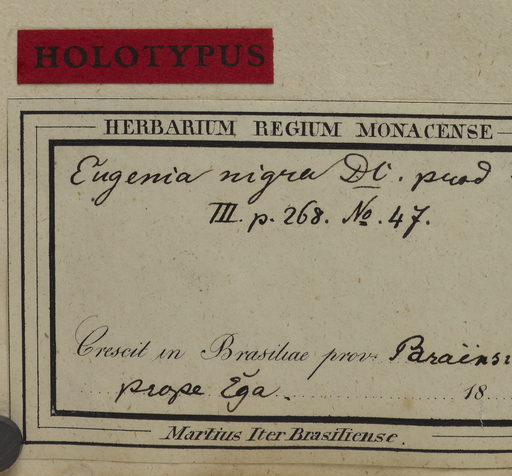 HOLOTYPUS
HERBARIUM REGIUM MONACENSE
Eugenia nigra DC. prod
III. p. 268. No. 47.
Crescit in Brasiliae prov.
prope Ega. 18
Martius Iter Brasiliense.